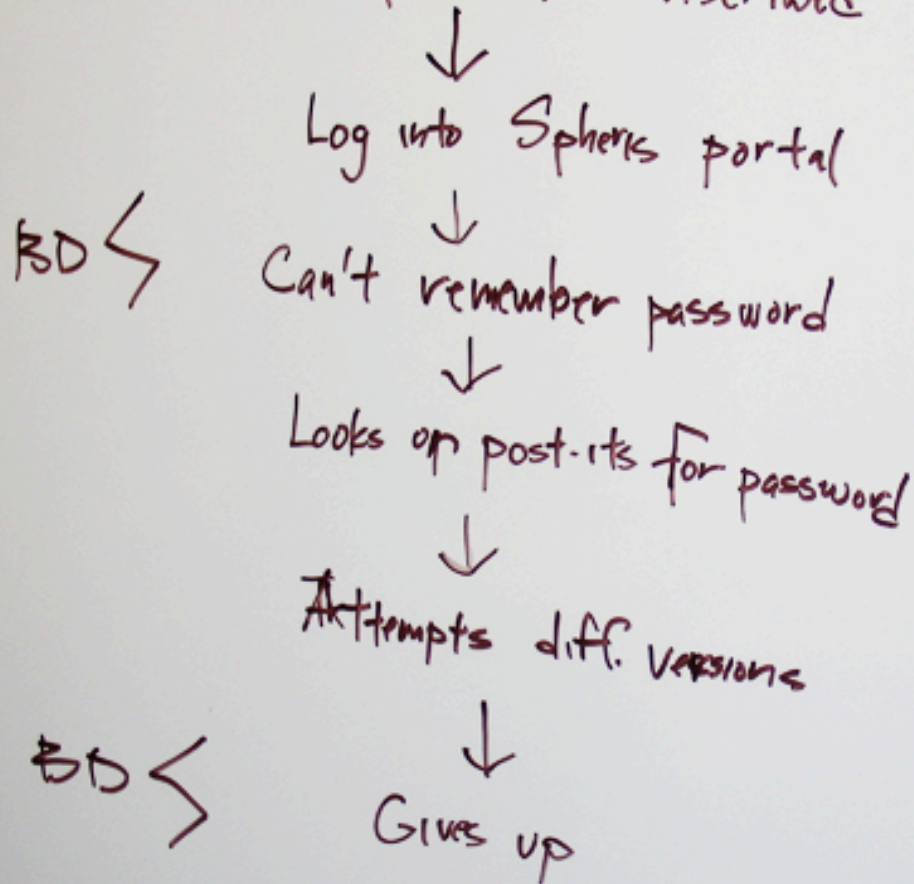 Log into Spheris portal
BD
Can't remember password
Looks on post-its for password
Attempts diff. versions
BD
Gives up